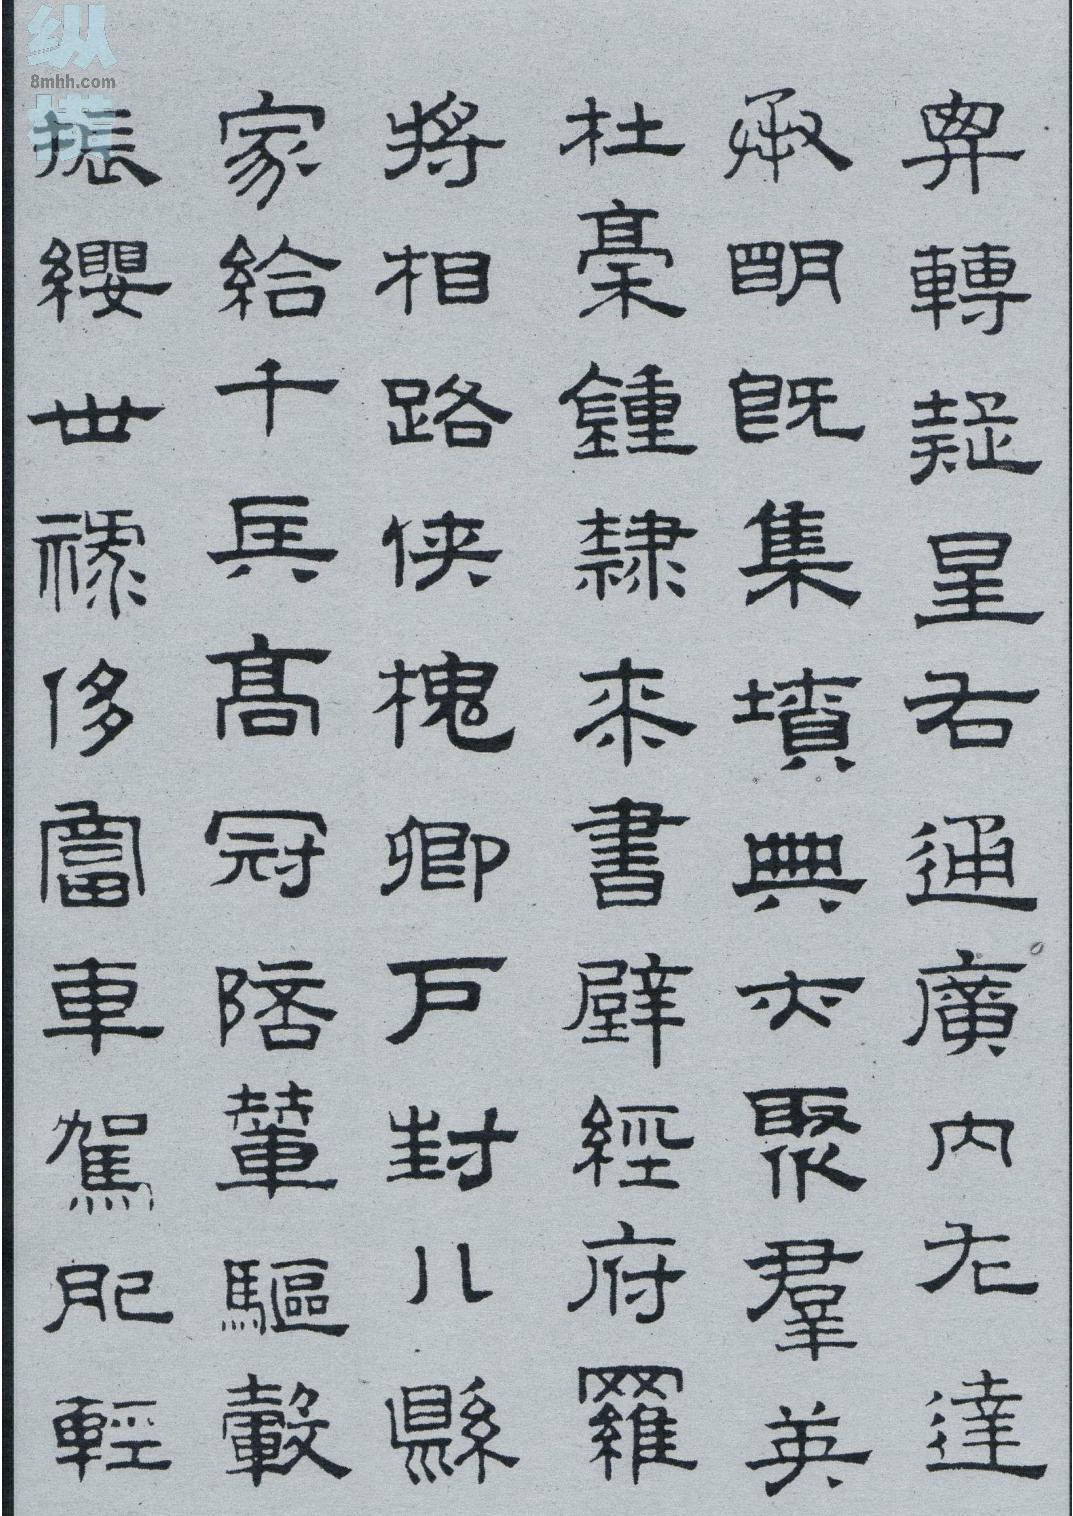 弁轉疑星右通廣內左達
承明既集墳典亦聚羣英
杜稾鍾隸柒書壁經府羅
將相路俠槐卿戶封八縣
家給千兵高冠陪輦驅轂
振纓世祿侈富車駕肥輕
纵横
8mhh.com